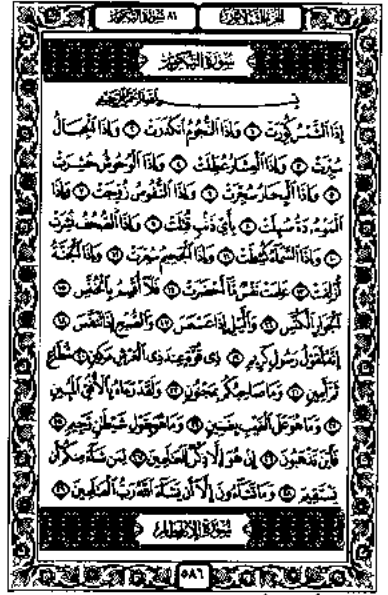 الجزء الثلاثون ٨١ سورة التكوير
سورة التكوير
بسم الله الرحمن الرحيم
إذا الشمس كورت ١ وإذا النجوم انكدرت ٢ وإذا الجبال
سيرت ٣ وإذا العشار عطلت ٤ وإذا الوحوش حشرت
٥ وإذا البحار سجرت ٦ وإذا النفوس زوجت ٧ وإذا
الموءدة سئلت ٨ بأي ذنب قتلت ٩ وإذا الصحف نشرت
١٠ وإذا السماء كشطت ١١ وإذا الجحيم سعرت ١٢ وإذا الجنة
أزلفت ١٣ علمت نفس ما أحضرت ١٤ فلا أقسم بالخنس ١٥
الجوار الكنس ١٦ والليل إذا عسعس ١٧ والصبح إذا تنفس ١٨
إنه لقول رسول كريم ١٩ ذي قوة عند ذي العرش مكين ٢٠ مطاع
ثم أمين ٢١ وما صاحبكم بمجنون ٢٢ ولقد رءاه بالأفق المبين
٢٣ وما هو على الغيب بضنين ٢٤ وما هو بقول شيطان رجيم ٢٥
فأين تذهبون ٢٦ إن هو إلا ذكر للعالمين ٢٧ لمن شاء منكم أن
يستقيم ٢٨ وما تشاءون إلا أن يشاء الله رب العالمين ٢٩
سورة الانفطار
٥٨٦